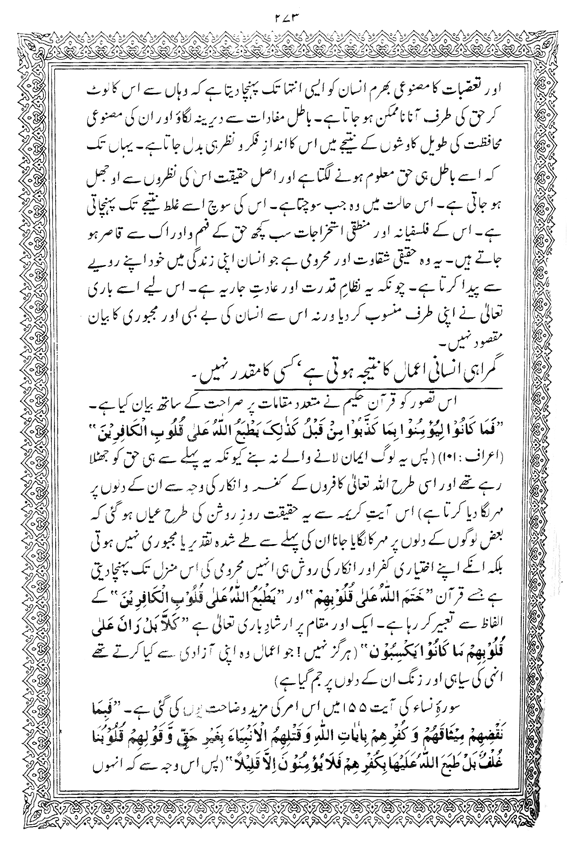 ۲۷۳
اور تعصبات کا مصنوعی بھرم انسان کو ایسی انتہا تک پہنچا دیتا ہے کہ وہاں سے اس کا لوٹ
کر حق کی طرف آنا ناممکن ہو جاتا ہے۔ باطل مفادات سے دیرینہ لگاؤ اور ان کی مصنوعی
محافظت کی طویل کاوشوں کے نتیجے میں اس کا اندازِ فکر و نظر ہی بدل جاتا ہے۔ یہاں تک
کہ اسے باطل ہی حق معلوم ہونے لگتا ہے اور اصل حقیقت اس کی نظروں سے اوجھل
ہو جاتی ہے۔ اس حالت میں وہ جب سوچتا ہے۔ اس کی سوچ اسے غلط نتیجے تک پہنچاتی
ہے۔ اس کے فلسفیانہ اور منطقی استخراجات سب کچھ حق کے فہم و ادراک سے قاصر ہو
جاتے ہیں۔ یہ وہ حقیقی شقاوت اور محرومی ہے جو انسان اپنی زندگی میں خود اپنے رویے
سے پیدا کرتا ہے۔ چونکہ یہ نظامِ قدرت اور عادتِ جاریہ ہے۔ اس لیے اسے باری
تعالیٰ نے اپنی طرف منسوب کر دیا ورنہ اس سے انسان کی بے بسی اور مجبوری کا بیان
مقصود نہیں۔
گمراہی انسانی اعمال کا نتیجہ ہوتی ہے‘ کسی کا مقدر نہیں۔
اس تصور کو قرآن حکیم نے متعدد مقامات پر صراحت کے ساتھ بیان کیا ہے۔
”فَمَا كَانُوا لِيُؤْمِنُوا بِمَا كَذَّبُوا مِنْ قَبْلُ كَذٰلِكَ يَطْبَعُ اللّٰهُ عَلٰى قُلُوبِ الْكَافِرِيْنَ“
(اعراف : ۱۰۱) (پس یہ لوگ ایمان لانے والے نہ بنے کیونکہ یہ پہلے سے ہی حق کو جھٹلا
رہے تھے اور اسی طرح اللہ تعالیٰ کافروں کے کفر و انکار کی وجہ سے ان کے دلوں پر
مہر لگا دیا کرتا ہے) اس آیتِ کریمہ سے یہ حقیقت روزِ روشن کی طرح عیاں ہو گئی کہ
بعض لوگوں کے دلوں پر مہر کا لگایا جانا ان کی پہلے سے طے شدہ تقدیر یا مجبوری نہیں ہوتی
بلکہ انکے اپنے اختیاری کفر اور انکار کی روش ہی انہیں محرومی کی اس منزل تک پہنچا دیتی
ہے جسے قرآن ”خَتَمَ اللّٰهُ عَلٰى قُلُوْبِهِمْ“ اور ”يَطْبَعُ اللّٰهُ عَلٰى قُلُوبِ الْكَافِرِيْنَ“ کے
الفاظ سے تعبیر کر رہا ہے۔ ایک اور مقام پر ارشادِ باری تعالیٰ ہے ”كَلَّا بَلْ رَانَ عَلٰى
قُلُوْبِهِمْ مَا كَانُوْا يَكْسِبُوْنَ“ (ہرگز نہیں! جو اعمال وہ اپنی آزادی سے کیا کرتے تھے
انہی کی سیاہی اور زنگ ان کے دلوں پر جم گیا ہے)
سورۃ نساء کی آیت ۱۵۵ میں اس امر کی مزید وضاحت یوں کی گئی ہے۔ ”فَبِمَا
نَقْضِهِمْ مِيْثَاقَهُمْ وَكُفْرِهِمْ بِاٰيَاتِ اللّٰهِ وَقَتْلِهِمُ الْاَنْبِيَاءَ بِغَيْرِ حَقٍّ وَّقَوْلِهِمْ قُلُوْبُنَا
غُلْفٌ بَلْ طَبَعَ اللّٰهُ عَلَيْهَا بِكُفْرِهِمْ فَلَا يُؤْمِنُوْنَ اِلَّا قَلِيْلًا“ (پس اس وجہ سے کہ انہوں